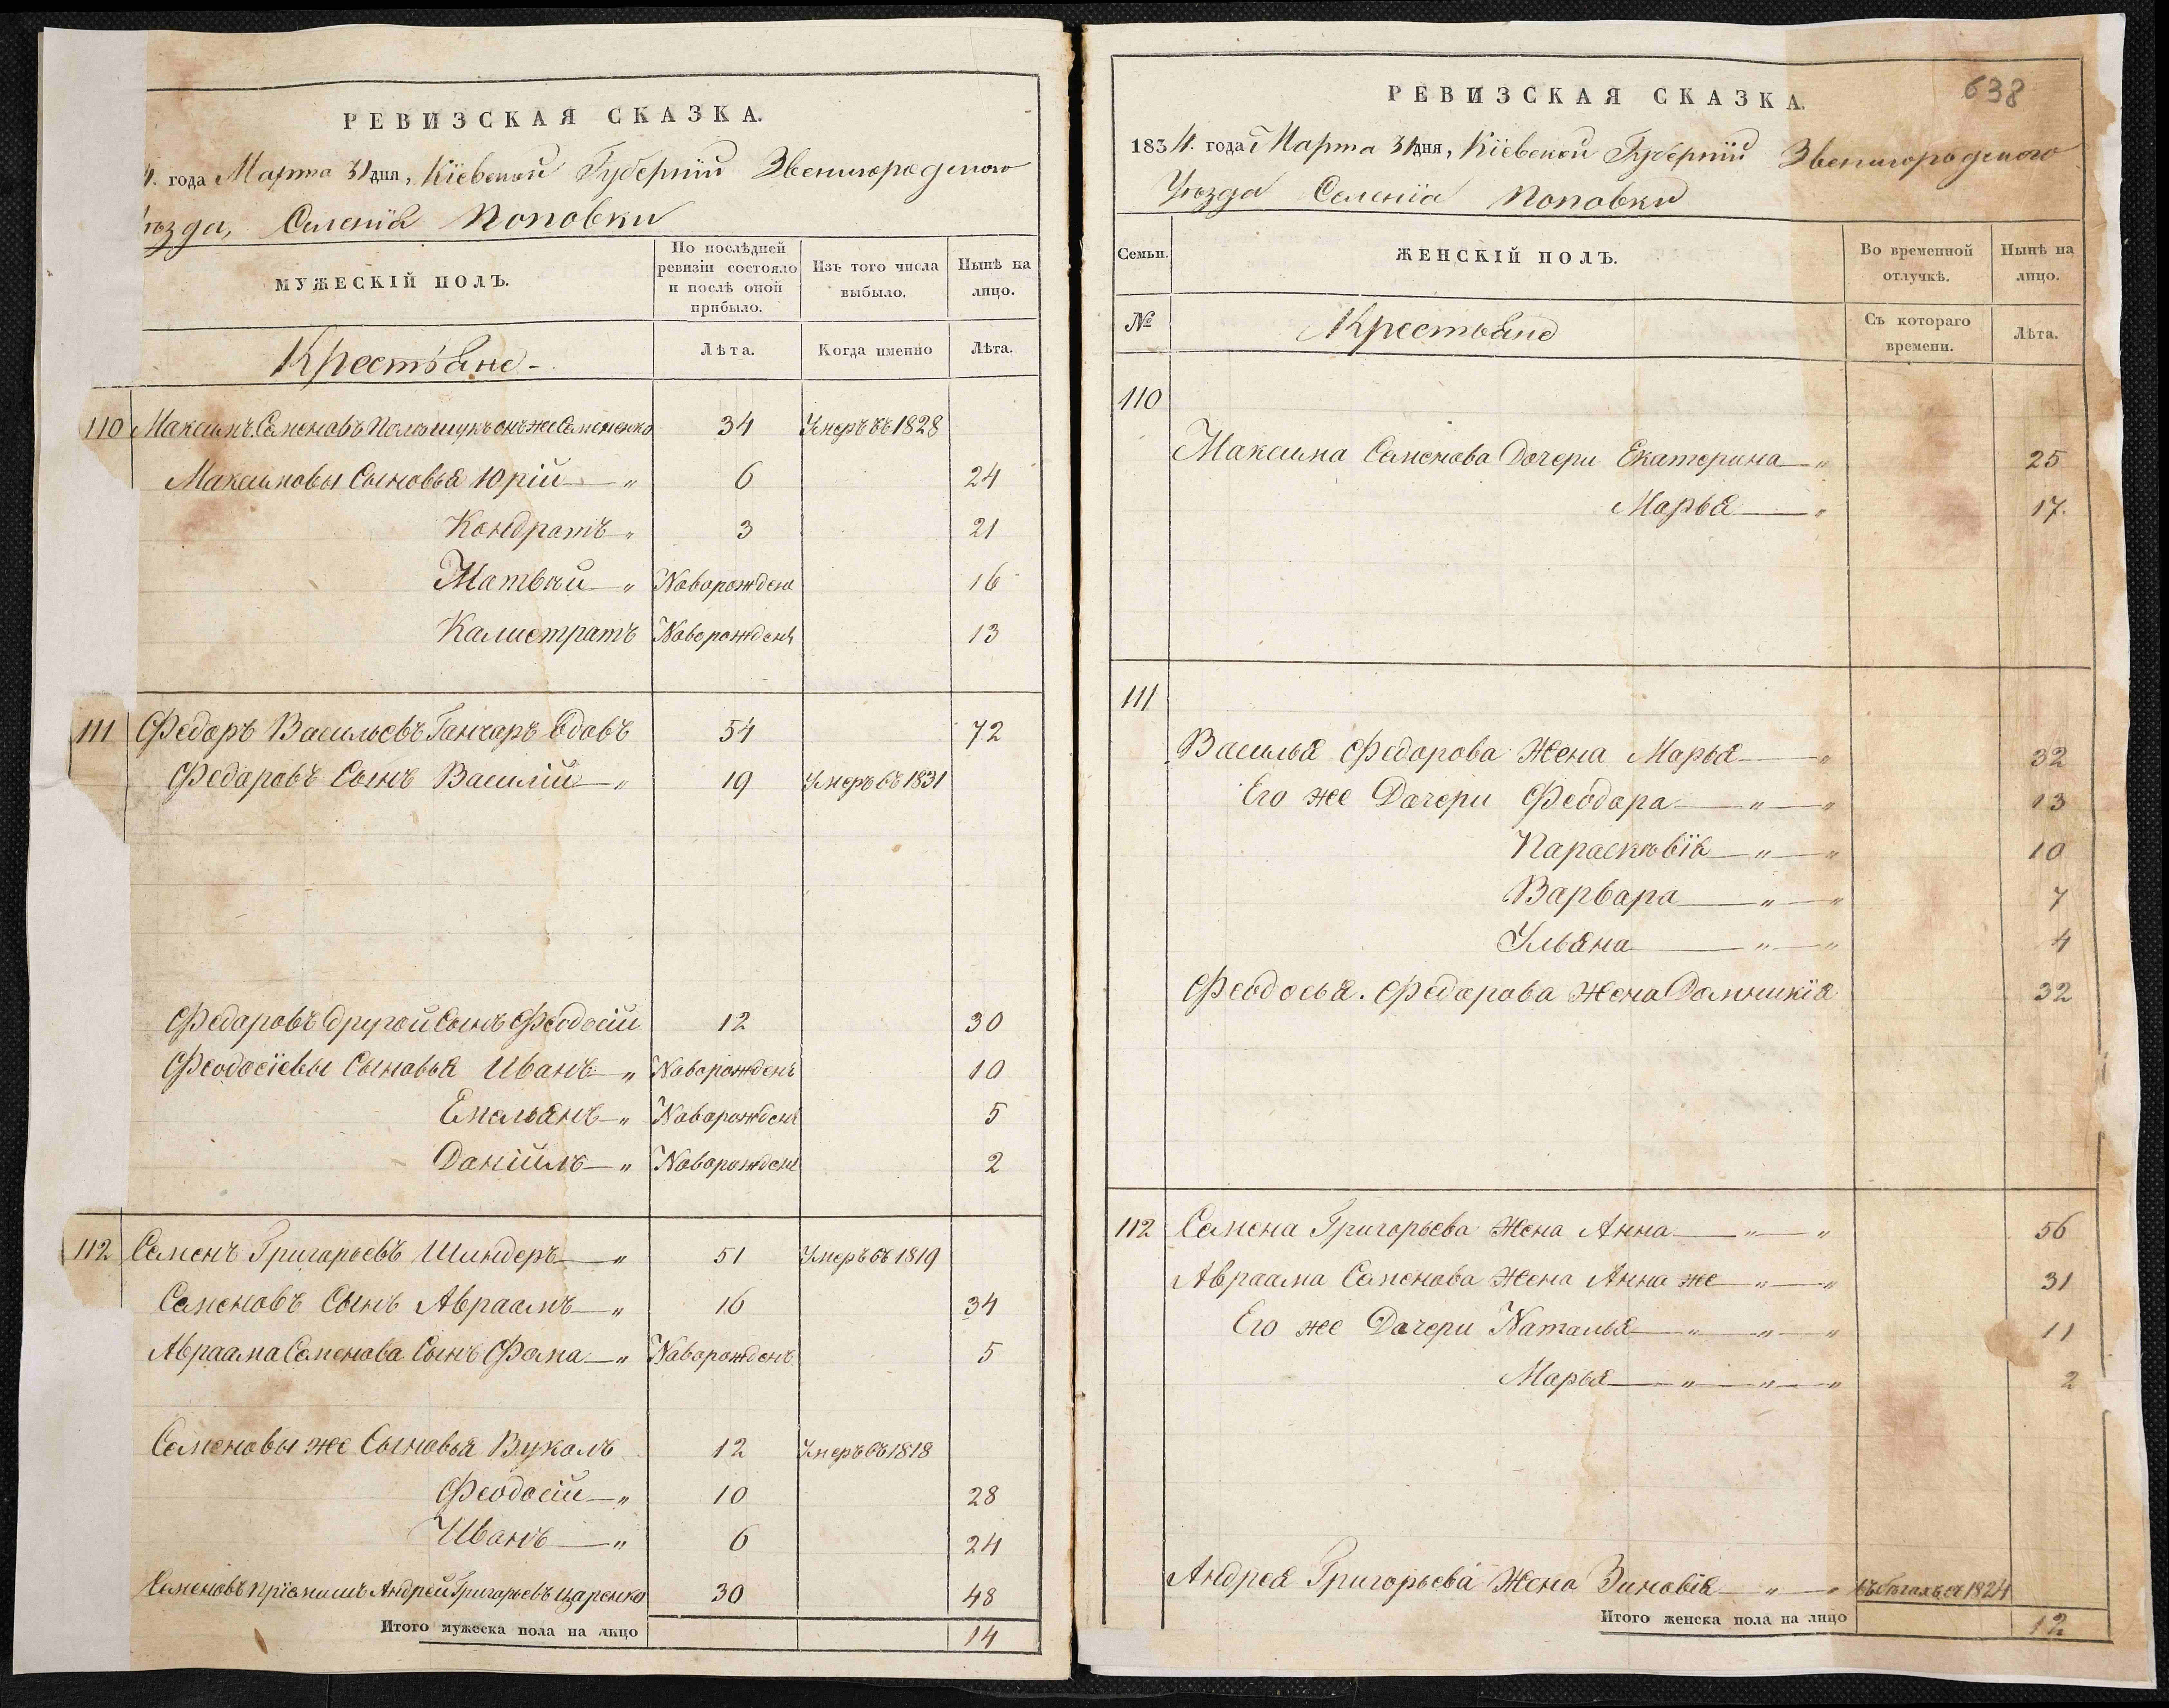 РЕВИЗСКАЯ СКАЗКА.
4. года Марта 31 дня, Кіевской Губерніи Звенигородского
ѣзда, Селенія Поповки
МУЖЕСКІЙ ПОЛЪ.
По послѣдней ревизіи состояло и послѣ оной прибыло.
Изъ того числа выбыло.
Нынѣ на лицо.
Крестьяне
Лѣта.
Когда именно
Лѣта.
110 Максимъ Семеновъ Полѣщукъ онъ же Семененко 34 Умеръ въ 1828
Максимовы Сыновья Юрій 6 24
Кондратъ 3 21
Матвѣй Новорожденъ 16
Калистратъ Новорожденъ 13
111 Федоръ Васильевъ Ганчаръ вдовъ 54 72
Федоровъ Сынъ Василій 19 Умеръ въ 1831
Федоровъ другой Сынъ Феодосій 12 30
Феодосіевы Сыновья Иванъ Новорожденъ 10
Емельянъ Новорожденъ 5
Даніилъ Новорожденъ 2
112 Семенъ Григорьевъ Шиндеръ 51 Умеръ въ 1819
Семеновъ Сынъ Авраамъ 16 34
Авраама Семенова Сынъ Фома Новорожденъ 5
Семеновы же Сыновья Вуколъ 12 Умеръ въ 1818
Феодосій 10 28
Иванъ 6 24
Семеновъ пріемышъ Андрей Григорьевъ Царенко 30 48
Итого мужеска пола на лицо 14
638
РЕВИЗСКАЯ СКАЗКА.
1834. года Марта 31 дня, Кіевской Губерніи Звенигородского
Уѣзда Селенія Поповки
Семьи.
ЖЕНСКІЙ ПОЛЪ.
Во временной отлучкѣ.
Нынѣ на лицо.
№
Крестьяне
Съ котораго времени.
Лѣта.
110
Максима Семенова Дочери Екатерина 25
Марья 17.
111
Василья Федорова Жена Марья 32
Его же Дочери Феодора 13
Параскѣвія 10
Варвара 7
Ульяна 4
Феодосья. Федорова Жена Домникія 32
112 Семена Григорьева Жена Анна 56
Авраама Семенова Жена Анна же 31
Его же Дочери Наталья 11
Марья 2
Андрея Григорьева Жена Зиновія въ бѣгахъ съ 1824
Итого женска пола на лицо 12